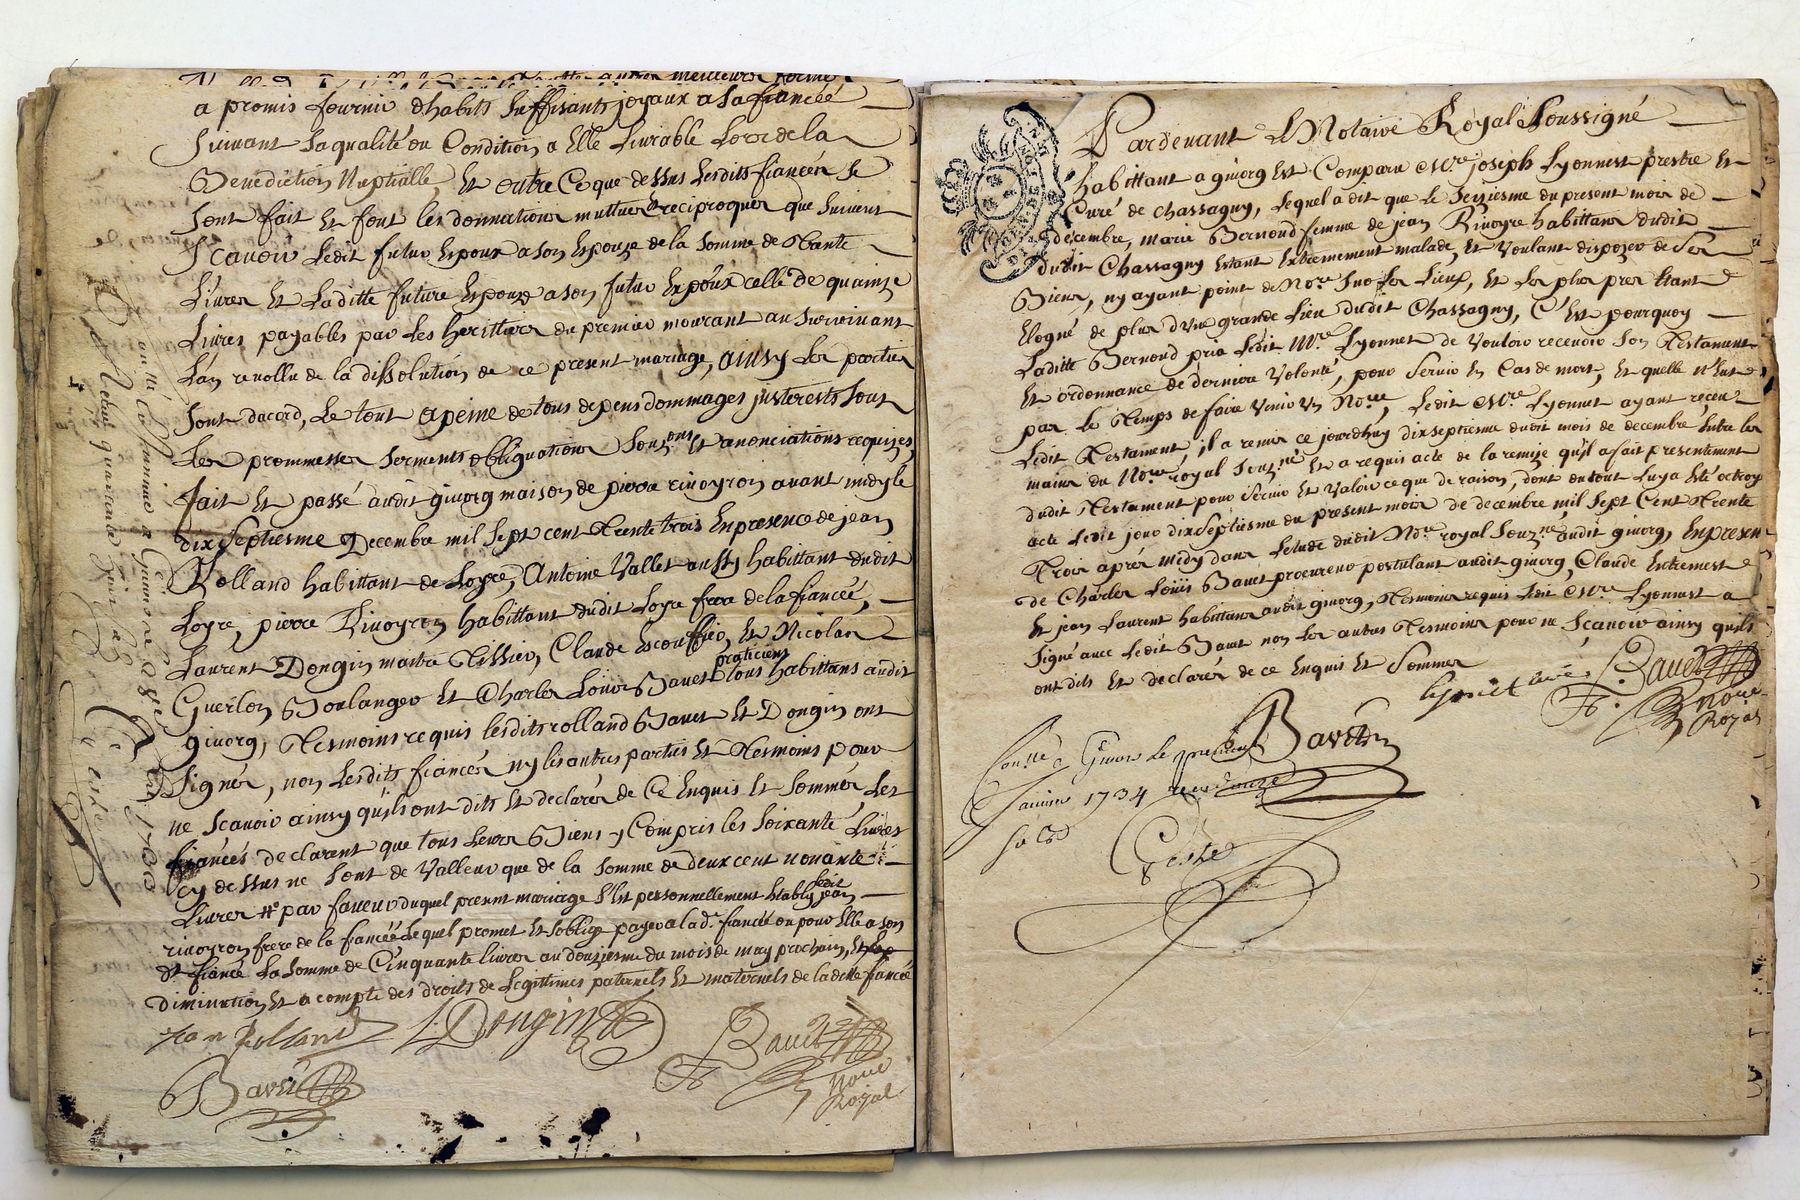 a promis fournir dhabits suffisants joyaux a sa fiancéé
suivant sa qualité ou Condition a Elle Livrable Lors de la
Benediction Nuptialle, Et outre Ce que dessus Lesdits fiancés se
sont fait Et font les donnations mutluer reciproques que suivent
Scavoir Ledit futur Espoux a son Espouze de la somme de trante
Livres Et Laditte future Espouze a son futur Expoux celle de quainze
Livres payables par Les heritiers du premier mourant au survivant
L'an revollu de la dissolution de ce present mariage, ainsy les parties
sont dacord, Le tout a peine de tous depens dommages justerests sous
Les prommesses serments obliguations souz.ons Et renonciations requizes
fait Et passé audit givorg maison de pierre rivoyron avant midy le
dix septiesme Decembre mil sept cent trente trois En presence de jean
Rolland habittant de Loyre, Antoine Vallet aussy habittant dudit
Loyre, pierre Rivoyron habittant dudit Loyre frere de la fiancéé,
Laurent Dongin maitre tissier, Claude Escouffier, Et Nicolas
praticiens
Guerlon Boulanger Et Charles Louis Bavet tous habittans audit
givorg, tesmoins requis lesdits rolland Bavet Et Dongin ont
signér, non Lesdits fiancés ny les autres parties Et tesmoins pour
ne scavoir ainsy quils ont dits Et declarér de Ce Enquis Et sommér Les
fiancés declarent que tous Leurs Biens y Compris les soixante Livres
cy dessus ne sont de Valleur que de la somme de deux cent nonante
Livres # par faveur duquel present mariage s'Est personnellement Etably ledit jean
rivoyron frere de la fiancéé Lequel promet Et soblige payer a lad.e fiancéé ou pour Elle a son
dt fiancé La somme de Cinquante livres au douziesme du mois de may prochain, Et
Diminution Et a compte des droits de Legittimes paternels Et maternels de laditte fiancéé
Jean Rolland L. Dongin Bavet
Bavet no.re Royal
Pardevant Le Notaire Royal Soussigné
habittant a givorg Est Comparu M.re joseph Lyonnest prestre Et
Curé de Chassagny, Lequel a dit que le seiziesme du present mois de
decembre, marie Bernoud femme de jean Rivoyre habittans dudit
dudit Chassagny Estant Extremement malade, Et voulant dispozer de ses
Biens, ny ayant point de No.re sur Les Lieux, Et Les plus pres Etant
Elogné de plus d'une grande Lieu dudit Chassagny, C'Est pourquoy
Laditte Bernoud pria Ledit M.re Lyonnet de vouloir recevoir son testament
Et ordonnance de derniere volonté, pour servir En Cas de mort, Et quelle n'Eut
pas le temps de faire venir un No.re, Ledit M.re Lyonnet ayant receu
Ledit testament, il a remis ce jourdhuy dix septiesme dudit mois de decembre Entre les
mains du No.re royal souz.né Et a requis acte de la remize qu'il a fait presentement
dudit testament pour servir Et valoir ce que de raison, dont du tout Luy a Esté octroyé
acte Ledit jour dix septiesme du present mois de decembre mil sept Cent trente
trois aprés midy dans Letude dudit No.re royal souz.né audit givorg, En presence
de Charles Louis Bavet procureur postulant audit givorg, Claude Entremest
Et jean Laurent habittans audit givorg, tesmoins requis Ledit M.re Lyonnest a
signé avec Ledit Bavet non Les autres tesmoins pour ne scavoir ainsy quils
ont dits Et declarér de ce Enquis Et sommér
Bavet
Bavet no.re Royal
Con.llé a Givors le premier
janvier 1734